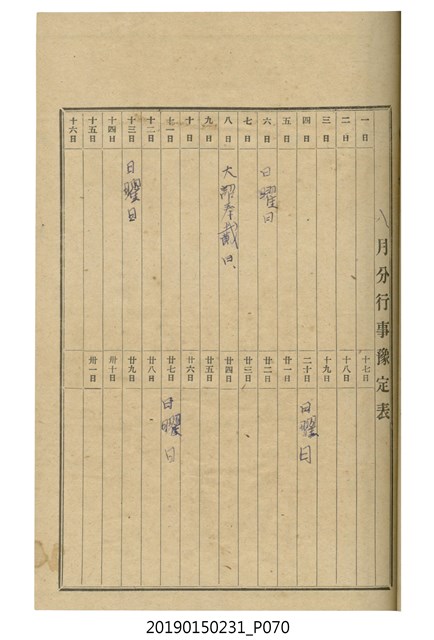 八月分行事豫定表
一日
二日
三日
四日
五日
六日 日曜日
七日
八日 大詔奉戴日
九日
十日
十一日
十二日
十三日 日曜日
十四日
十五日
十六日
十七日
十八日
十九日
二十日 日曜日
廿一日
廿二日
廿三日
廿四日
廿五日
廿六日
廿七日 日曜日
廿八日
廿九日
卅十日
卅一日
20190150231_P070